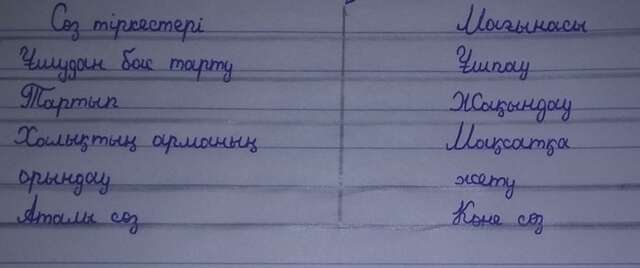 Сөз тіркестері Мағынасы
Ұшудан бас тарту Ұшпау
Тартып Жақындау
Халықтың арманың Мақсатқа
орындау жету
Аталы сөз Көне сөз